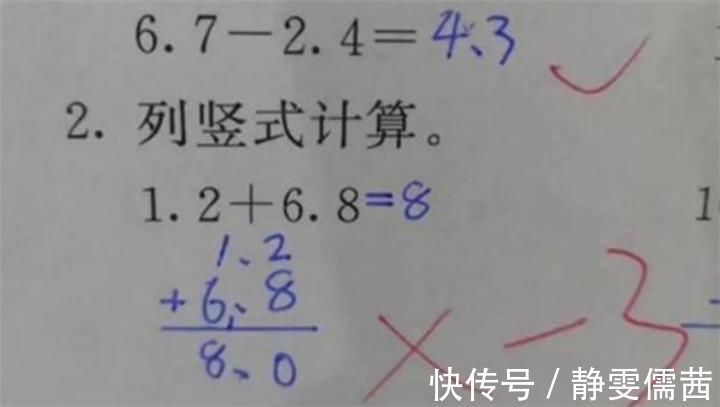 6.7－2.4＝4.3
2. 列竖式计算。
1.2＋6.8=8
1
1.2
+6.8
8.0
× －3
快传号 / 静雯儒茜